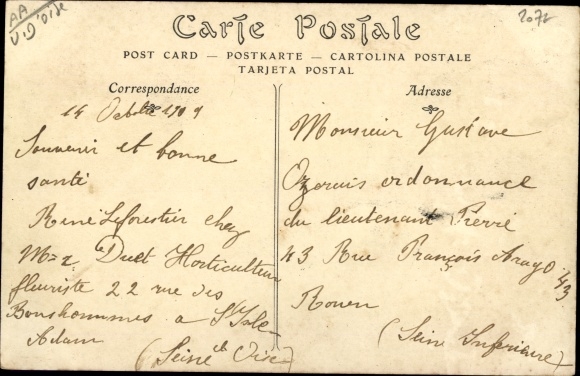 AA
V. d'Oise
2072
Carte Postale
POST CARD — POSTKARTE — CARTOLINA POSTALE
TARJETA POSTAL
Correspondance
14 Octobre 1909
Souvenir et bonne
santé
René Leforestier chez
Duet Horticulteur
fleuriste 22 rue des
Bonshommes a St Isle
Adam
(Seine et Oise)
Adresse
Monsieur Gustave
ordonnance
du lieutenant Pierré
43 Rue François Arago 43
Rouen
(Seine Inferieure)